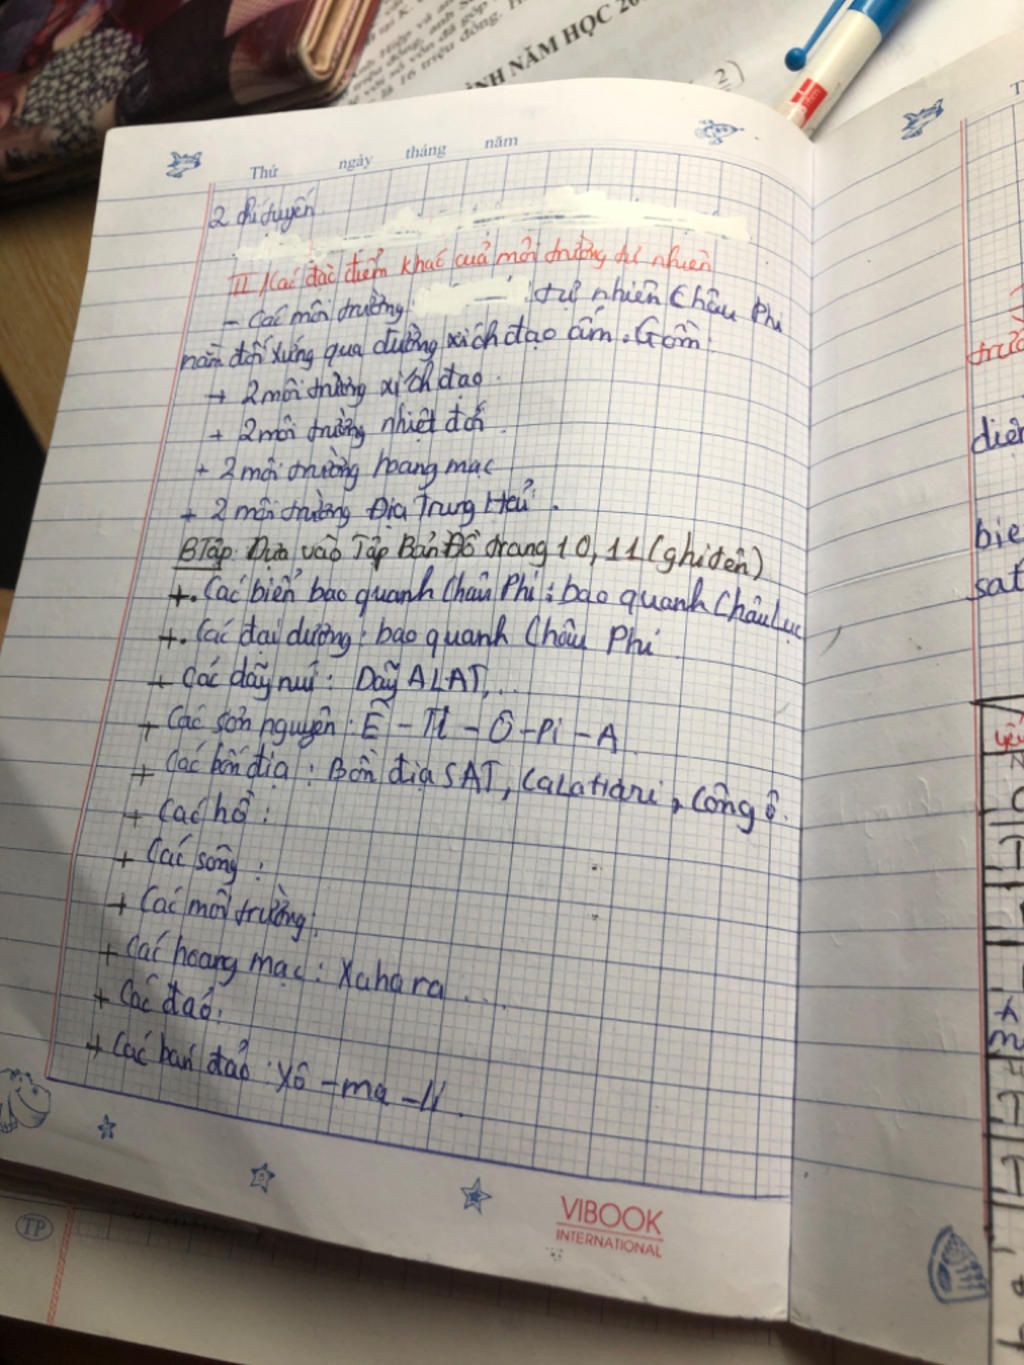 ÌNH NĂM HỌC 20
16 triệu đồng.
Thứ ngày tháng năm
2 chí tuyến
II/Các đặc điểm khác của môi trường tự nhiên
- Các môi trường tự nhiên Châu Phi
nằm đối xứng qua đường xích đạo ấm. Gồm:
+ 2 môi trường xích đạo.
+ 2 môi trường nhiệt đới.
+ 2 môi trường hoang mạc
+ 2 môi trường Địa Trung Hải.
BTập: Dựa vào Tập Bản Đồ trang 10, 11 (ghi tên)
+. Các biển bao quanh Châu Phi: bao quanh Châu Lục
+. Các đại dương: bao quanh Châu Phi
+ Các dãy núi: Dãy ALAT,...
+ Các sơn nguyên: Ê - TI - Ô - Pi - A
+ Các bồn địa: Bồn địa SAT, CaLaHari, Công Gô.
+ Các hồ:
+ Các sông:
+ Các môi trường:
+ Các hoang mạc: Xahara....
+ Các đảo:
+ Các bán đảo: Xô - ma - li.
VIBOOK
INTERNATIONAL
TP
diện